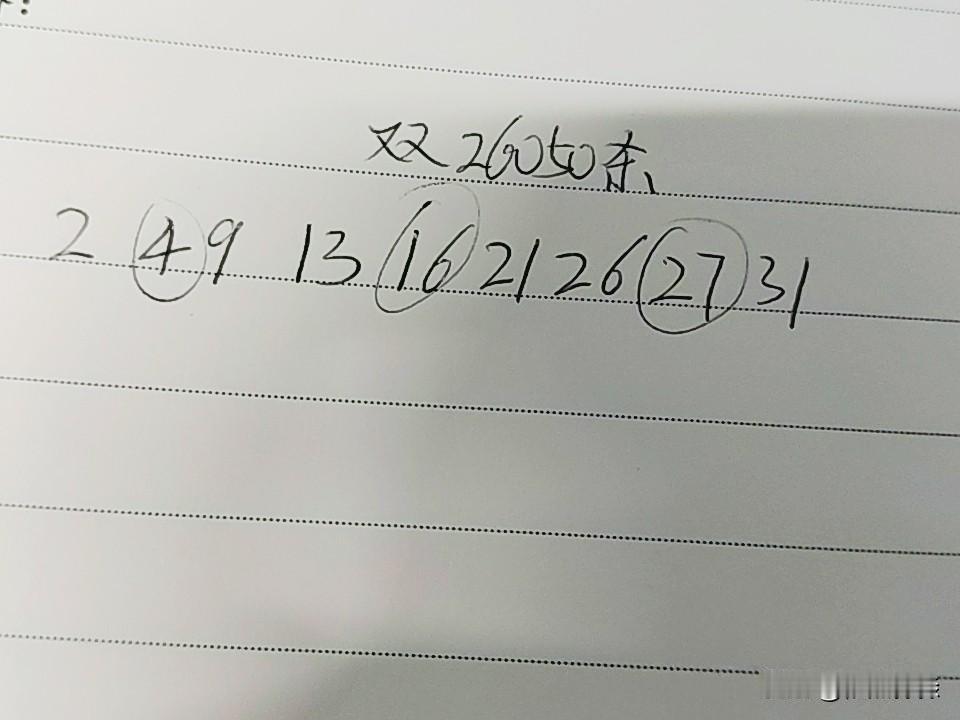 双26050杀、
2 4 9 13 16 21 26 27 31